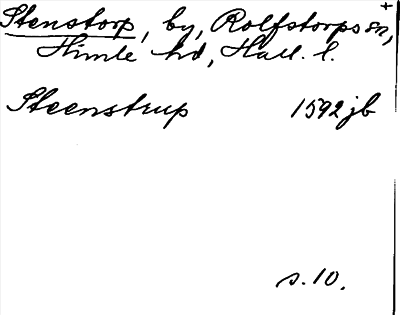 Stenstorp, by, Rolfstorps sn,
Himle hd, Hall. l.
Steenstrup 1592 jb
s. 10.